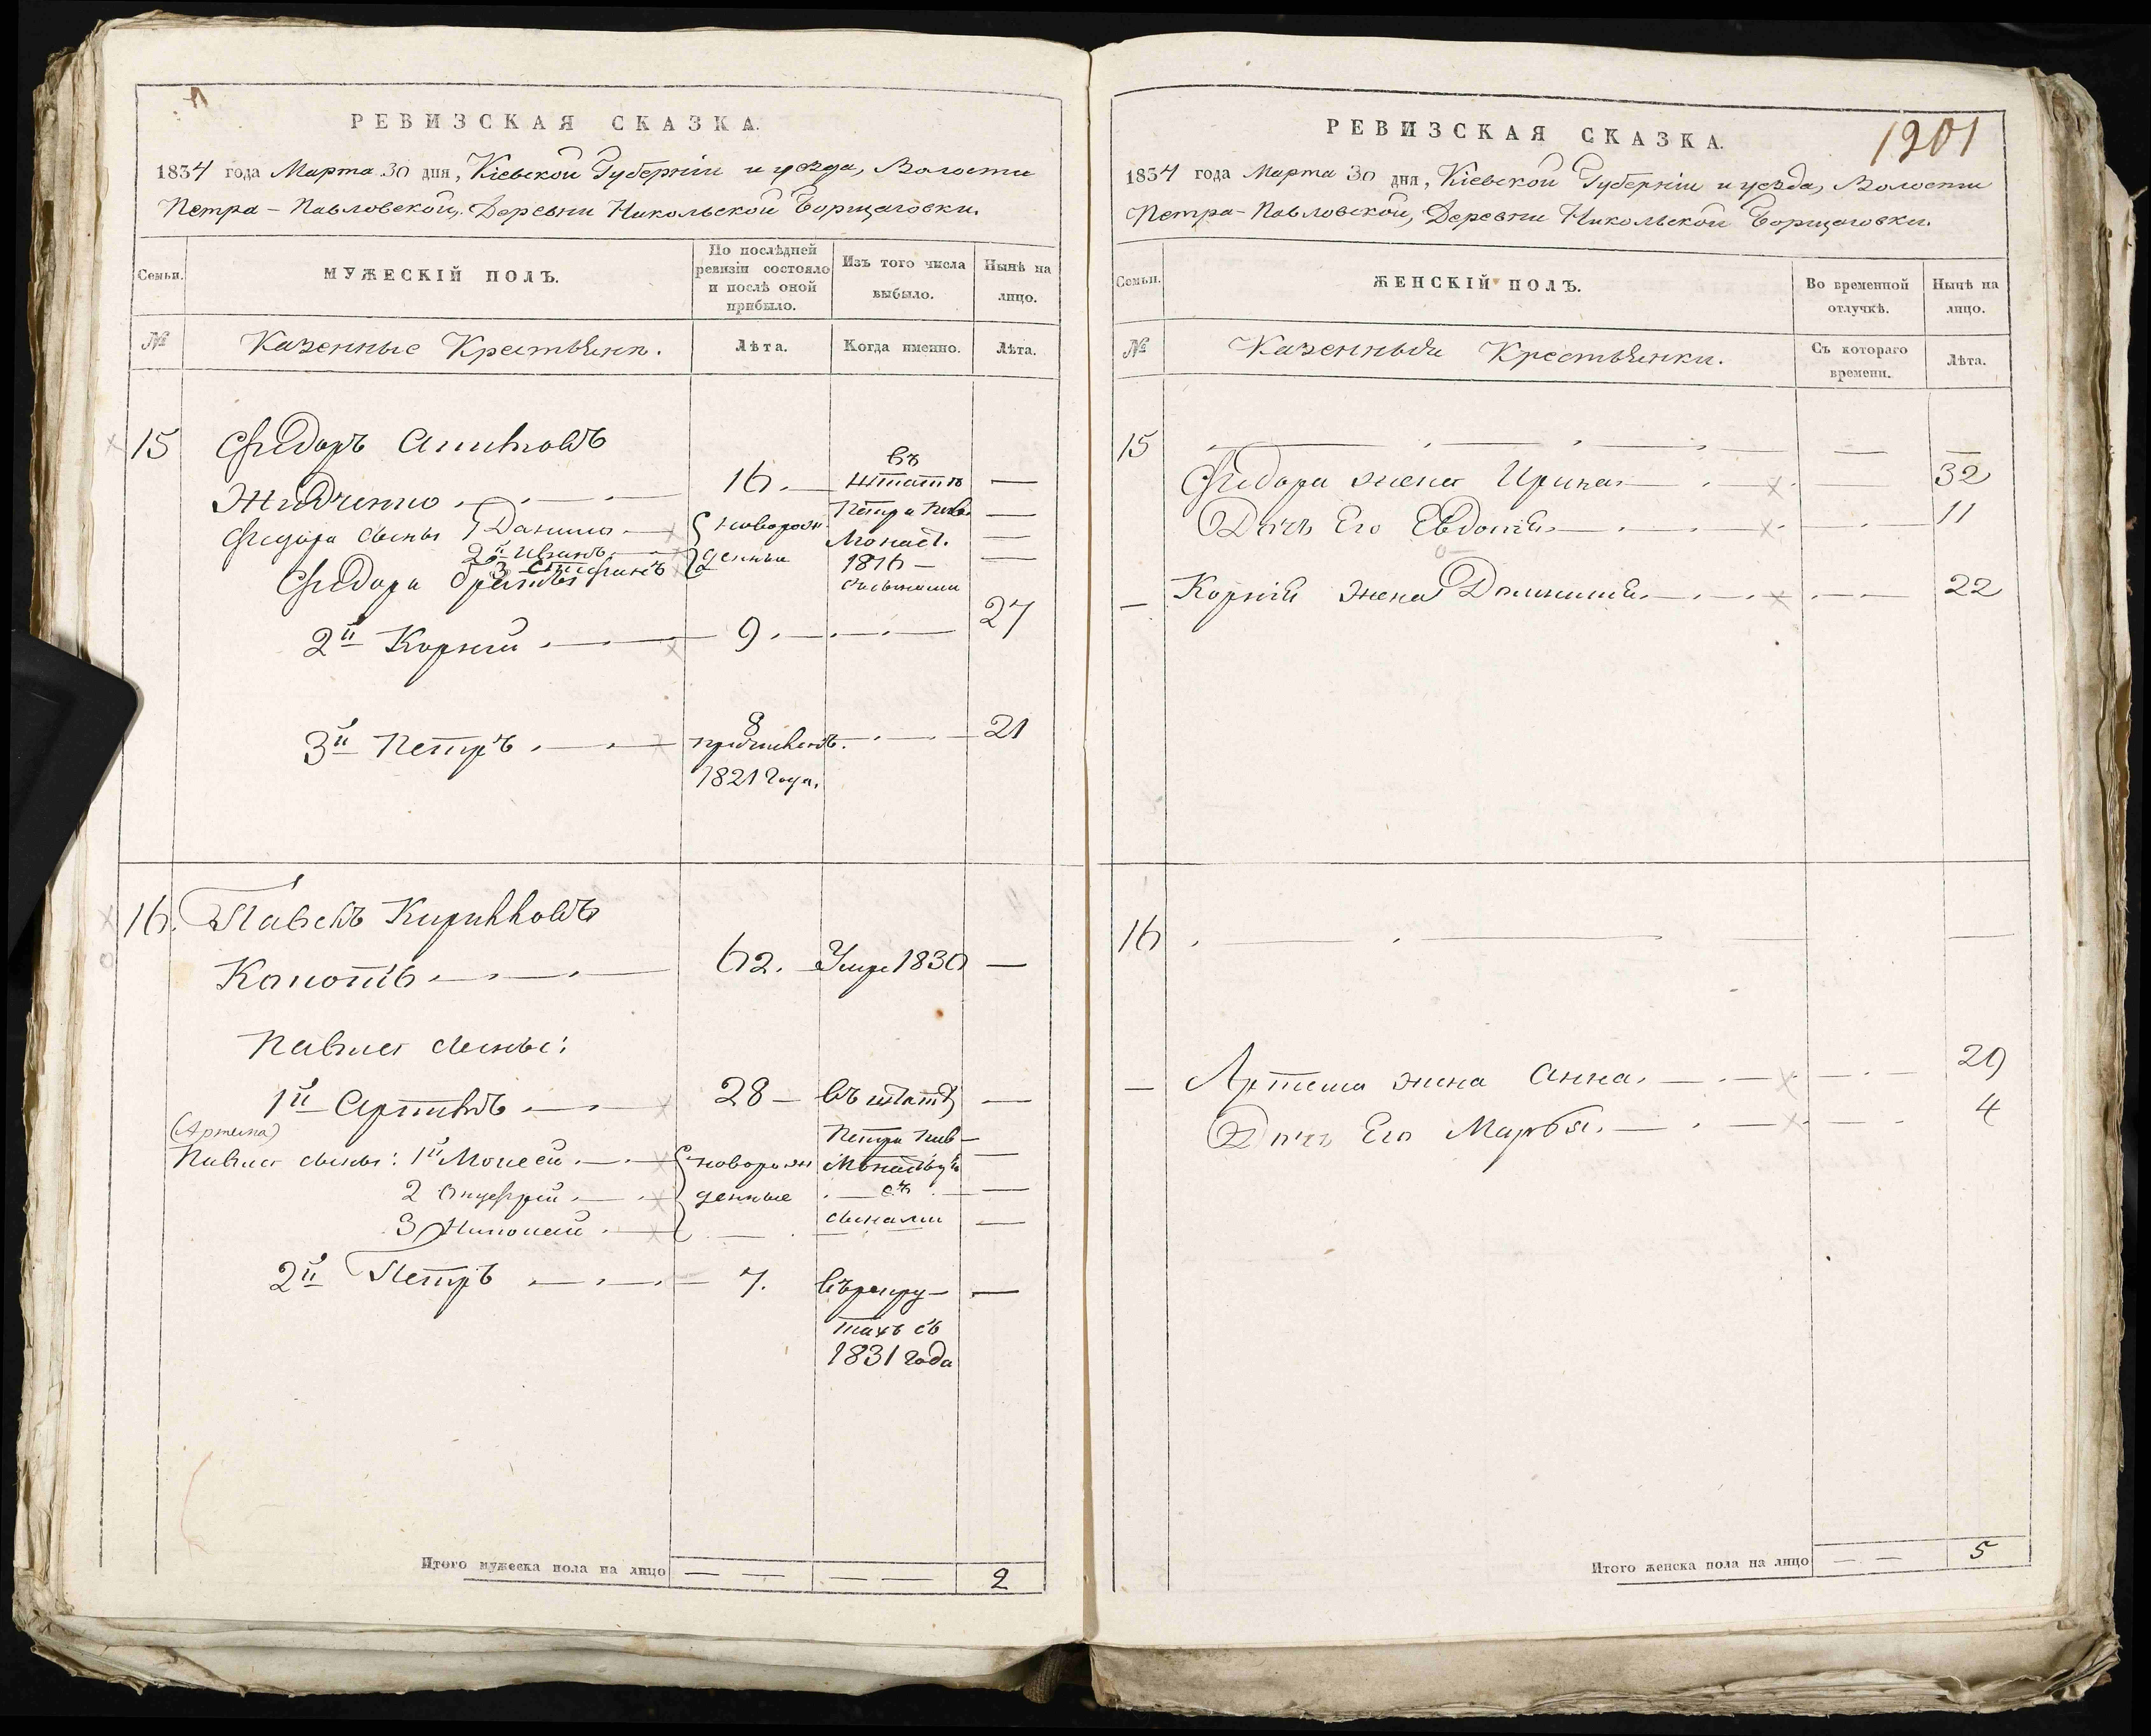 РЕВИЗСКАЯ СКАЗКА.
1834 года Марта 30 дня, Кіевской Губерніи и уезда, Волости
Петра-Павловской, Деревни Никольской Борщаговки.
Семьи.
МУЖЕСКІЙ ПОЛЪ.
По послѣдней
ревизіи состояло
и послѣ оной
прибыло.
Изъ того числа
выбыло.
Нынѣ на
лицо.
№
Казенные Крестьяне.
Лѣта.
Когда именно.
Лѣта.
15 Федоръ
16. въ штатѣ —
Федора сыны 1 Данило — новорож
Петра Пав. —
2й Иванъ
3 Стефанъ
денные
Монаст. —
1816 —
Федора братья
съ сынами
2й Корнии — 9. — 27
3й Петръ — 8 — 21
причисленъ.
1821 года.
16. Павелъ Кирилловъ
Кононъ — 62. Умре 1830 —
Павла сыны:
1й Артемъ — 28 — въ штатѣ —
(Артема)
Петра Пав —
Павла сыны: 1й Моисей — новорож Монастыря —
2 Онуфрій — денные — съ —
3 Никонъ — сынами —
2й Петръ — 7. въ рекру —
тахъ съ
1831 года
Итого мужеска пола на лицо — — — — 2
РЕВИЗСКАЯ СКАЗКА.
1201
1834 года Марта 30 дня, Кіевской Губерніи и уезда, Волости
Петра-Павловской, Деревни Никольской Борщаговки.
Семьи.
ЖЕНСКІЙ ПОЛЪ.
Во временной
отлучкѣ.
Нынѣ на
лицо.
№
Казенныя Крестьянки.
Съ котораго
времени.
Лѣта.
15 — — —
Федора жена Ирина — — 32
Дочь Его Евдокия — — 11
— Корнія жена Домникия — — 22
16 — —
— Артема жена Анна. — — 29
Дочь Его Марфа. — — 4
Итого женска пола на лицо — — 5